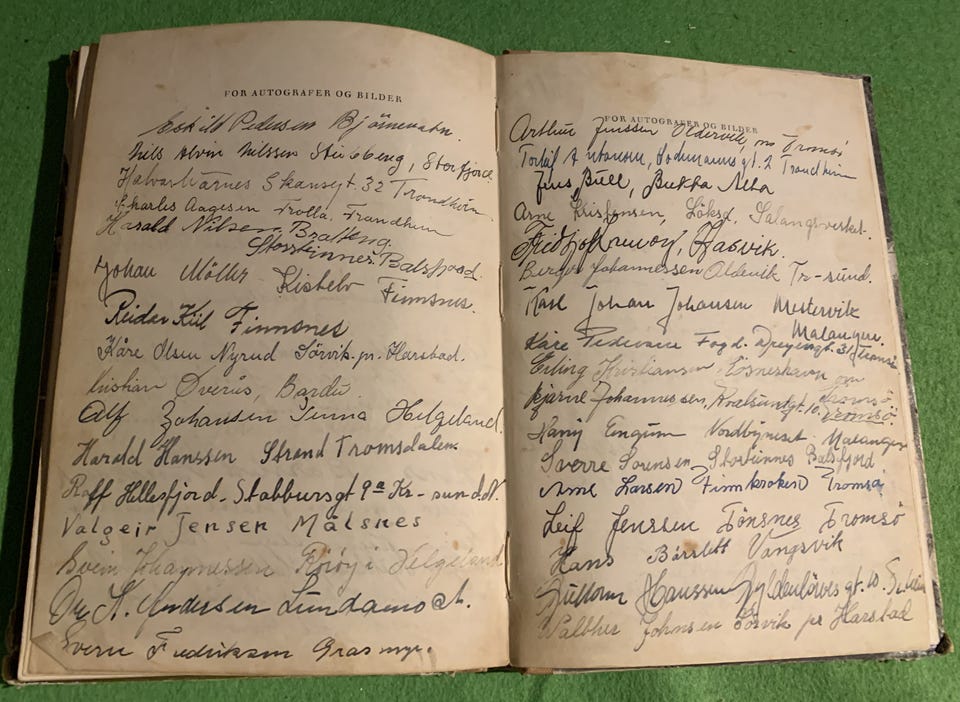 FOR AUTOGRAFER OG BILDER
Eskild Pedersen Björnevatn.
Nils Alvin Nilssen Steinberg, Storfjord.
Halvar Warnes Skansegt. 32 Trondheim.
Charles Aagesen Trolla, Trondheim
Harald Nilsen, Brateng.
Storsteinnes Balsfjord.
Johan Möller Kistelv Finnsnes.
Reidar Kiil Finnsnes
Kåre Olsen Nyrud Sörvik pr. Harstad.
Kristian Överås, Bardu.
Alf Johansen Tenna Helgeland.
Harald Hanssen Strand Tromsdalen
Rolf Hellesfjord. Stabbursgt 9a Kr-sund.N.
Valgeir Jensen Målsnes
Svein Johannessen Rörøy i Helgeland
A. Andersen Lundamo st.
Sverre Fredriksen Grasmyr.
FOR AUTOGRAFER OG BILDER
Arthur Jenssen Oldervik, pr Tromsö
Torleif Antonsen, gt. 2 Trondheim
Jens Bull, Bukta Alta
Arne Kristensen, Löksd, Salangsverket.
Hasvik.
Birger Johannessen Oldervik Tr-sund.
Karl Johan Johansen Mestervik
Malangen.
Kåre Pedersen Fagd. Dreyersgt. 31, Tromsö
Erling Kristiansen,
Bjarne Johannessen, gt. 10. Tromsö.
Nordbyneset, Malangen
Sverre Sörensen Storsteinnes Balsfjord
Arne Larsen Finnkroken Tromsö
Leif Jenssen Tönsnes Tromsö
Hans Vangsvik
Guttorm Hanssen Gyldenlövesgt. 10.
Walther Johnsen Sörvik pr Harstad